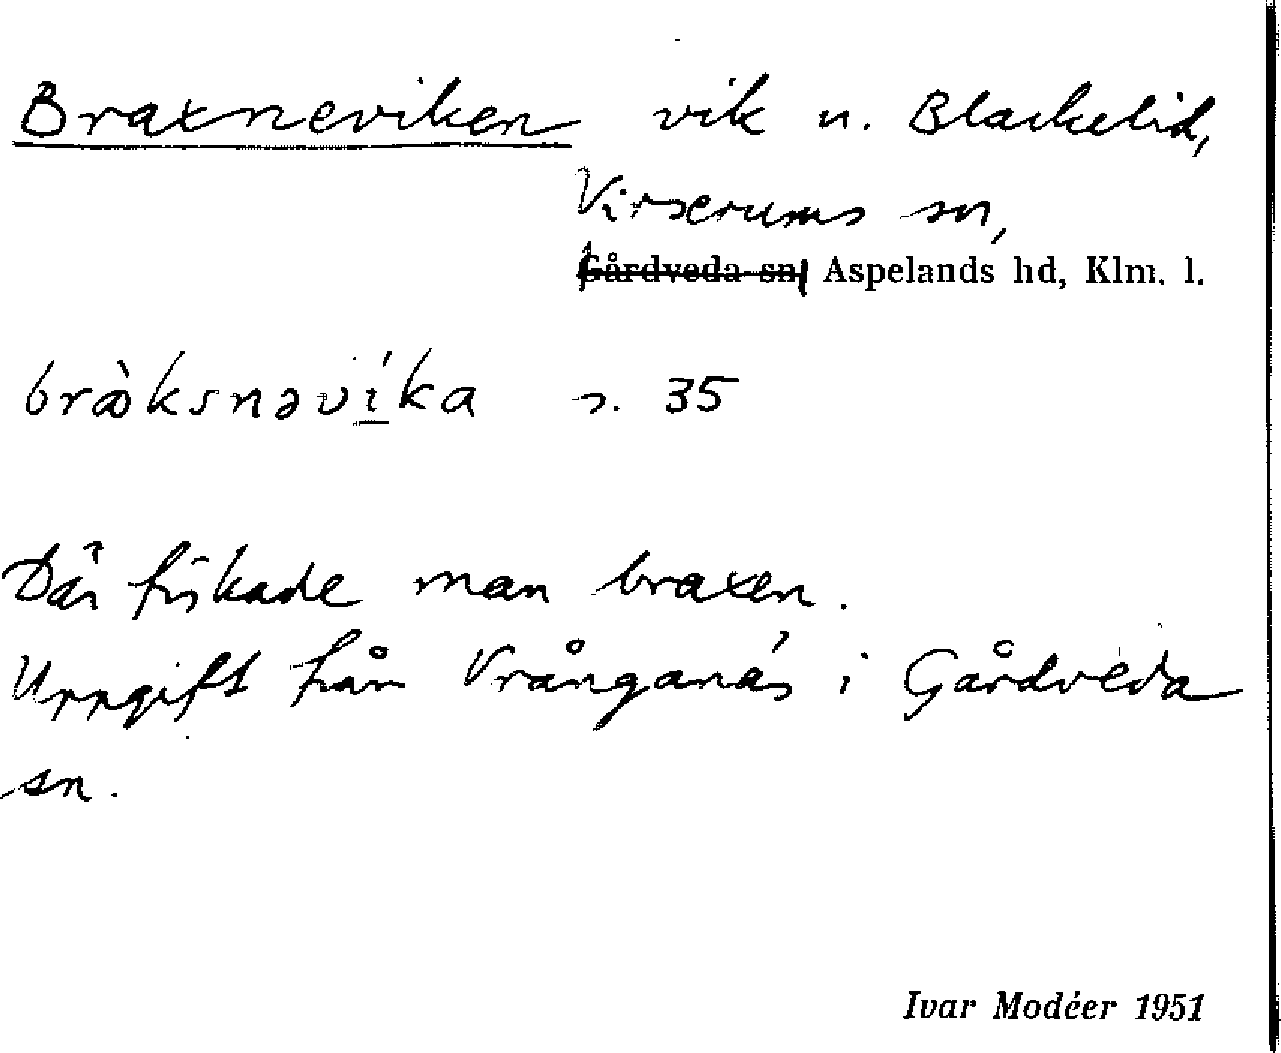 Braxneviken vik n. Blackelid,
Virserums sn,
Gårdveda sn, Aspelands hd, Klm. l.
bràksnəvíka s. 35
Där fiskade man braxen.
Uppgift från Vrånganäs i Gårdveda
sn.
Ivar Modéer 1951